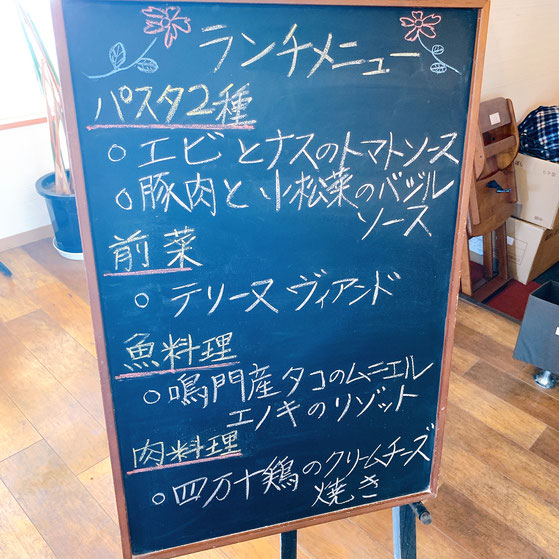 ランチメニュー
パスタ2種
○エビとナスのトマトソース
○豚肉と小松菜のバジル
ソース
前菜
○テリーヌ ヴィアンド
魚料理
○鳴門産タコのムニエル
エノキのリゾット
肉料理
○四万十鶏のクリームチーズ
焼き